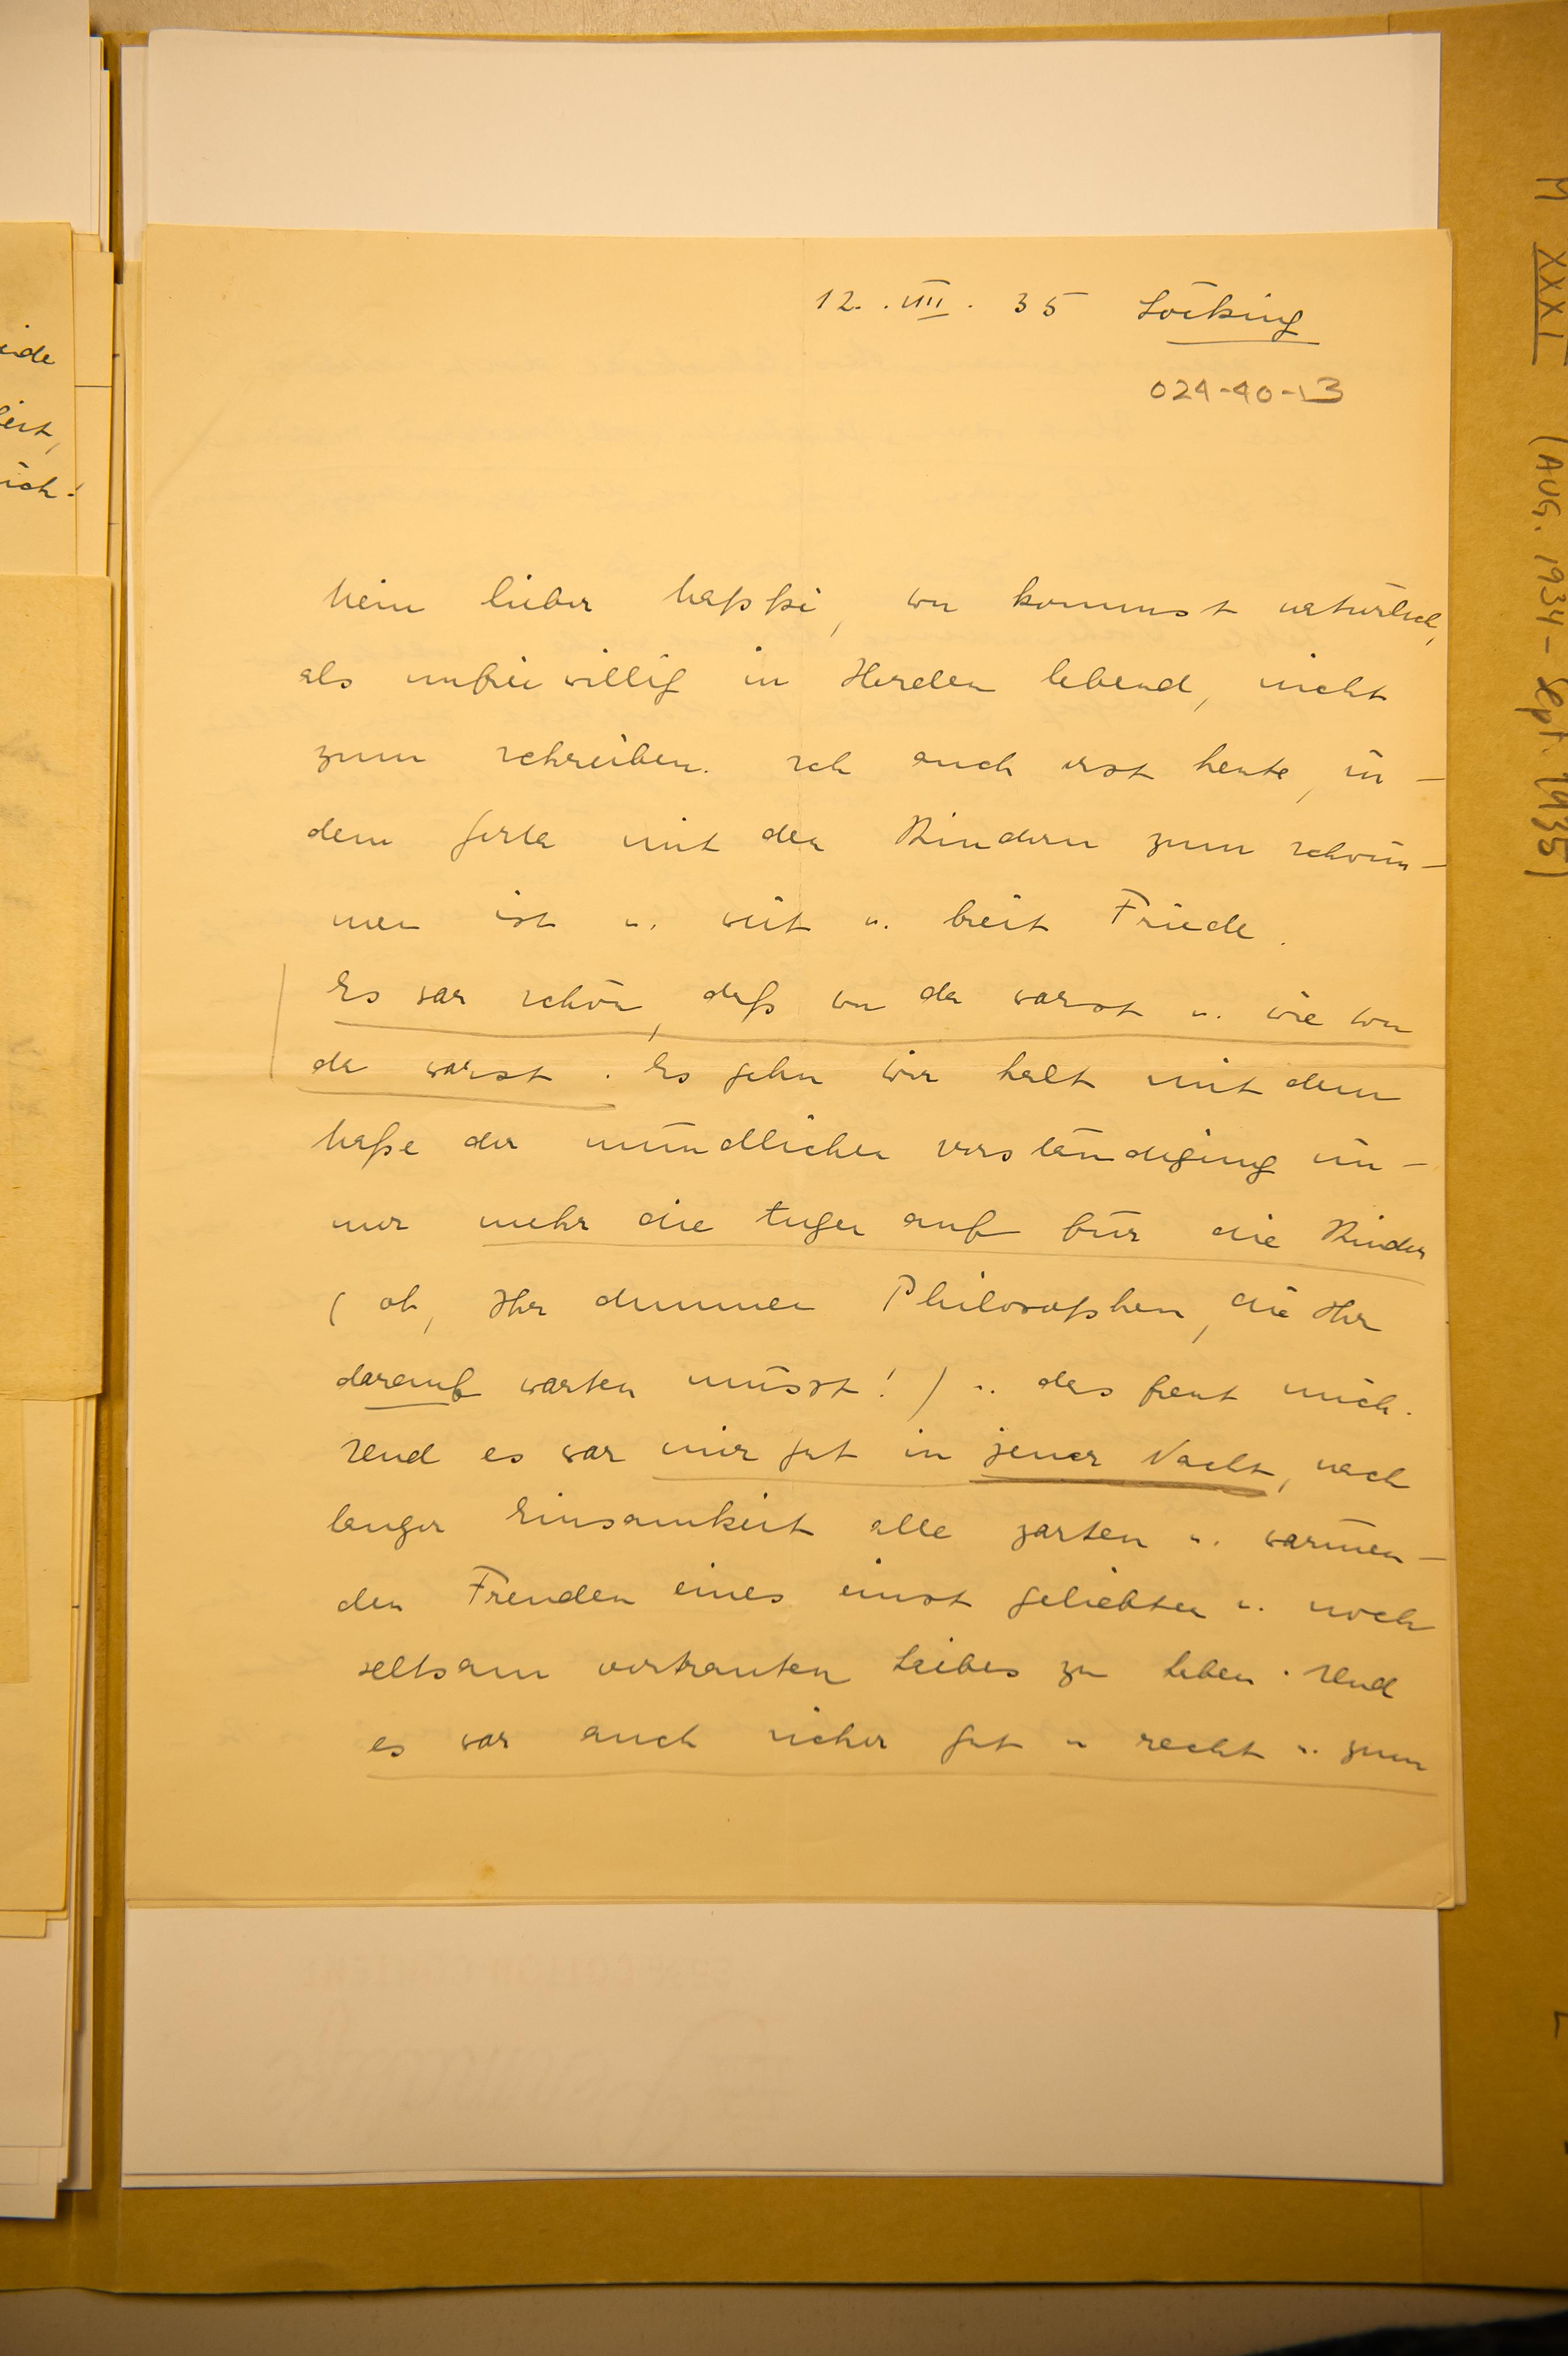 12. VIII. 35 Söcking
024-40-13
Mein lieber Mappi, Du kommst natürlich,
als unfreiwillig in Herden lebend, nicht
zum schreiben. Ich auch erst heute, in-
dem Gerla mit den Kindern zum schwim-
men ist u. weit u. breit Friede.
Es war schön, daß Du da warst u. wie Du
da warst. Es gehn Dir halt mit dem
Maße der mündlicher verständigung im-
mer mehr die Augen auf für die Kinder
(oh, Ihr dummen Philosophen, die Ihr
darauf warten müsst!) u. das freut mich.
Und es war mir gut in jener Nacht, nach
langer Einsamkeit alle zarten u. wärmen-
den Freuden eines einst geliebten u. noch
seltsam vertrauten Leibes zu leben. Und
es war auch sicher gut u recht u. zum
M XXXI (AUG. 1934 – Sept. 1935)
eide
eit,
ich.